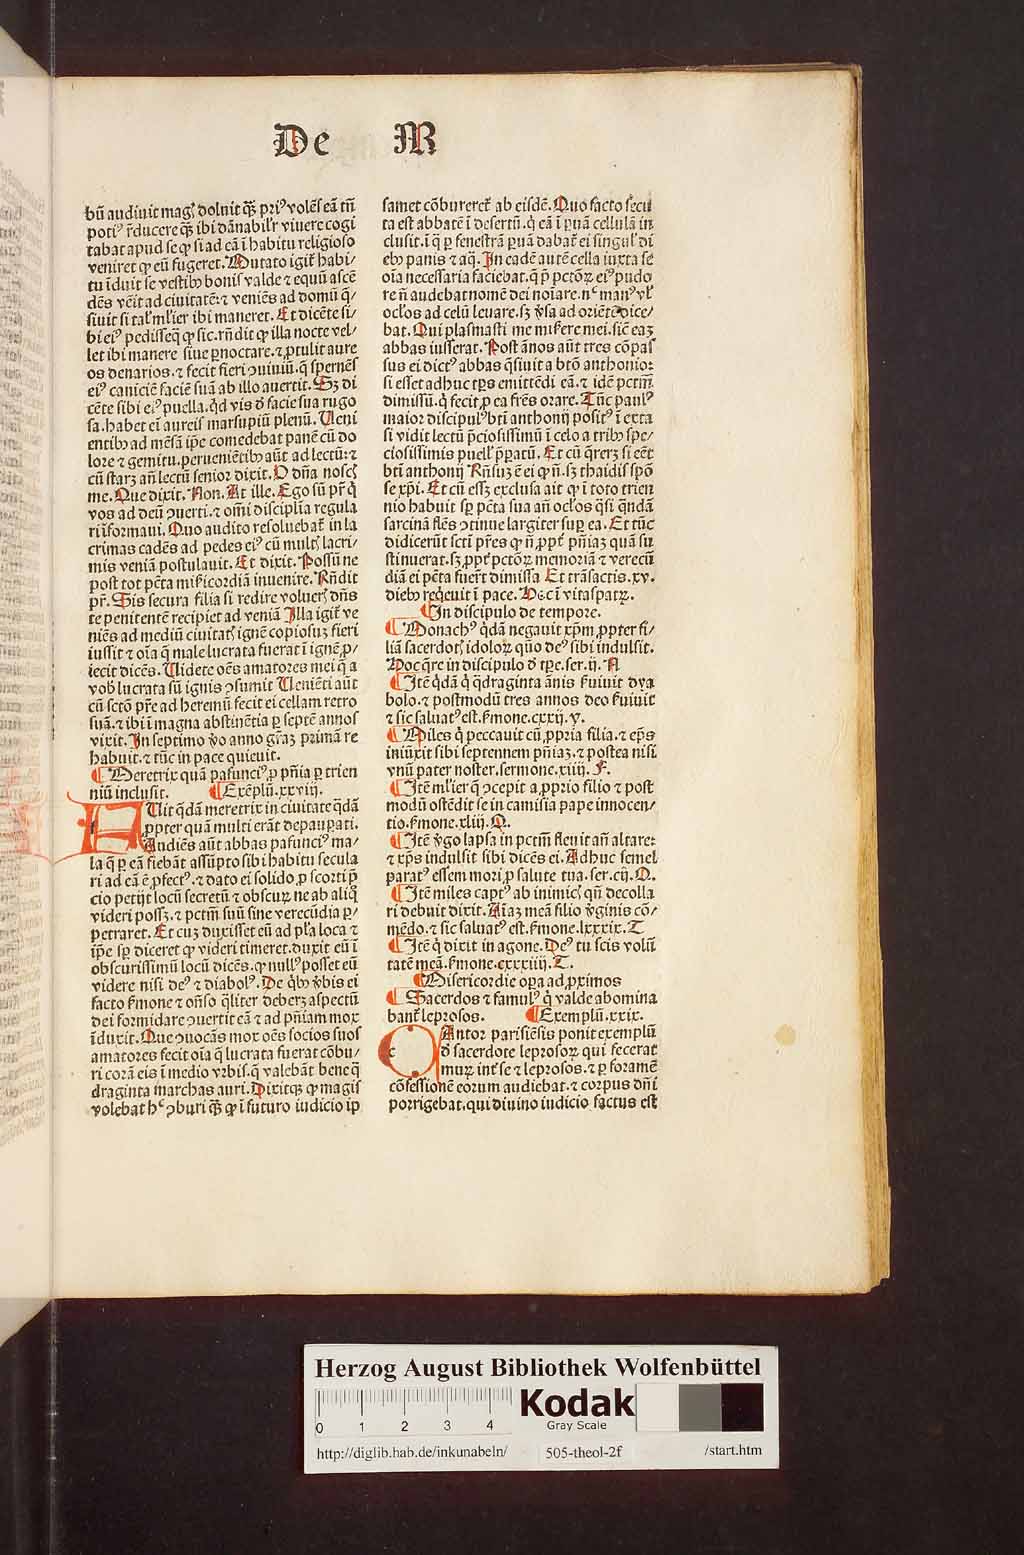 De M
bū audiuit magꝭ doluit qꝫ priꝰ volēs eā tm̄
potiꝰ r̄ducere qꝫ ibi dānabilr̄ viuere cogi
tabat apud se ꝙ si ad eā ī habitu religioso
veniret ꝙ eū fugeret. Mutato igit̄ habi⸗
tu īduit se vestibꝰ bonis valde ⁊ equū ascē
dēs vēit ad ciuitatē: ⁊ veniēs ad domū q̄⸗
siuit si tal' ml'ier ibi maneret. Et dicēte si⸗
bi eiꝰ pedisseq̄ ꝙ sic. rn̄dit ꝙ illa nocte vel⸗
let ibi manere siue ꝑnoctare. ⁊ ꝓtulit aure
os denarios. ⁊ fecit fieri ꝯuiuiū. q̄ spernēs
eiꝰ caniciē faciē suā ab illo auertit. Sꝫ di
cēte sibi eiꝰ puella. qd̄ vis d̄ facie sua rugo
sa. habet ei aureis marsupiū plenū. Ueni
entibꝰ ad mēsā ip̄e comedebat panē cū do
lore ⁊ gemitu. perueniētibꝰ aūt ad lectū: ⁊
cū starꝫ an̄ lectū senior dixit. O dn̄a noscꝭ
me. Que dixit. Non. At ille. Ego sū pr̄ q̄
vos ad deū ꝯuerti. ⁊ om̄i disciplīa regula
ri īformaui. Quo audito resoluebat̄ in la
crimas cadēs ad pedes eiꝰ cū multꝭ lacri⸗
mis veniā postulauit. Et dixit. Possū ne
post tot pctā mīcordiā inuenire. Rn̄dit
pr̄. Sis secura filia si redire volueꝭ dn̄s
te penitentē recipiet ad veniā Illa igit̄ ve
niēs ad mediū ciuitatꝭ ignē copiosuꝫ fieri
iussit ⁊ oīa q̄ male lucrata fuerat ī ignē ꝓ⸗
iecit dicēs. Uidete oēs amatores mei q̄ a
vob̄ lucrata sū ignis ꝯsumit Ueniēti aūt
cū sctō pr̄e ad heremū fecit ei cellam retro
suā. ⁊ ibi ī magna abstinētia ꝑ septē annos
vixit. In septimo v̄o anno gr̄aꝫ primā re
habuit. ⁊ tūc in pace quieuit.
¶ Meretrix quā pafunciꝰ ꝓ pn̄ia ꝑ trien
niū inclusit. ¶ Exēplū. xxviij.
FUit qdā meretrix in ciuitate qdā
ꝓpter quā multi erāt depauꝑati.
Audiēs aūt abbas pafunciꝰ ma⸗
la q̄ ꝑ eā fiebāt assūpto sibi habitu secula
ri ad eā ē ꝓfectꝰ. ⁊ dato ei solido ꝓ scorti p̄
cio petijt locū secretū ⁊ obscuꝝ ne ab aliq̄
videri possꝫ. ⁊ pctm̄ suū sine verecūdia ꝑ⸗
petraret. Et cuꝫ duxisset eū ad pl'a loca ⁊
ip̄e sꝑ diceret ꝙ videri timeret. duxit eū ī
obscurissimū locū dicēs. ꝙ nullꝰ posset eū
videre nisi deꝰ ⁊ diabolꝰ. De qbꝰ v̄bis ei
facto s̄mone ⁊ on̄so qliter deberꝫ aspectū
dei formidare ꝯuertit eā ⁊ ad pn̄iam mox
īduxit. Que ꝯuocās mox oēs socios suos
amatores fecit oīa q̄ lucrata fuerat cōbu⸗
ri corā eis ī medio vrbis. q̄ valebāt bene q̄
draginta marchas auri. Dixitqꝫ ꝙ magis
volebat hᶜ ꝯburi qꝫ ꝙ ī futuro iudicio ip
samet cōbureret̄ ab eisdē. Quo facto secu
ta est abbatē ī desertū. q̄ eā ī ꝑuā cellulā in
clusit. ī q̄ ꝑ fenestrā ꝑuā dabat̄ ei singul' di
ebꝰ panis ⁊ aq̄. In eadē autē cella iuxta se
oīa necessaria faciebat. q̄ p̄ pctōꝝ eiꝰ pudo
re n̄ audebat nomē dei noīare. nᶜ manꝰ vl'
ocl'os ad celū leuare. sꝫ v̄sa ad oriētē dice⸗
bat. Qui plasmasti me miserere mei. sic̄ eaꝫ
abbas iusserat. Post ānos aūt tres cōpas
sus ei dictꝰ abbas q̄siuit a btō anthonio:
si esset adhuc tp̄s emittēdi eā. ⁊ idē pctm̄
dimissū. q̄ fecit ꝓ ea frēs orare. Tūc paulꝰ
maior discipulꝰ bt̄i anthonij positꝰ ī exta
si vidit lectū p̄ciosissimū ī celo a tribꝰ spe⸗
ciosissimis puell' p̄ꝑatū. Et cū q̄rerꝫ si eēt
bt̄i anthonij Rn̄suꝫ ē ei ꝙ n̄. sꝫ thaidis spō
se xp̄i. Et cū essꝫ exclusa ait ꝙ ī toto trien
nio habuit sꝑ pctā sua an̄ ocl'os q̄si q̄ndā
sarcinā flēs ꝯtinue largiter suꝑ ea. Et tūc
didicerūt sctī pr̄es ꝙ n̄ ꝓpt̄ pn̄iaꝫ quā su
stinuerat. sꝫ ꝓpt̄ pctōꝝ memoriā ⁊ verecū
diā ei pctā fuer̄t dimissa Et trāsactis. xv.
diebꝰ reqeuit ī pace. Hec ī vitaspatꝝ.
¶ In discipulo de tempore.
¶ Monachꝰ qdā negauit xp̄m ꝓpter fi⸗
liā sacerdotꝭ idoloꝝ quo deꝰ sibi indulsit.
Hoc q̄re in discipulo d̄ tp̄e. ser. ij. N
¶ Itē qdā q̄ qdraginta ānis s̄uiuit dya
bolo. ⁊ postmodū tres annos deo s̄uiuit
⁊ sic saluatꝰ est. s̄mone. cxxij. v.
¶ Miles q̄ peccauit cū ꝓpria filia. ⁊ ep̄s
iniūxit sibi septennem pn̄iaꝫ. ⁊ postea nisi
vnū pater noster. sermone. xiiij. F.
¶ Itē ml'ier q̄ ꝯcepit a ꝓprio filio ⁊ post
modū ostēdit se in camisia pape innocen⸗
tio. s̄mone. xliij. Q.
¶ Itē v̄go lapsa in pctm̄ fleuit an̄ altare:
⁊ xp̄s indulsit sibi dicēs ei. Adhuc semel
paratꝰ essem mori ꝓ salute tua. ser. cij. O.
¶ Itē miles captꝰ ab inimicꝭ qn̄ decolla
ri debuit dixit. Aīaꝫ meā filio v̄ginis cō⸗
mēdo. ⁊ sic saluatꝰ est. s̄mone. lxxxix. T
¶ Itē q̄ dixit in agone. Deꝰ tu scis volū
tatē meā. s̄mone. cxxxiiij. T.
¶ Misericordie oꝑa ad ꝓximos
¶ Sacerdos ⁊ famulꝰ q̄ valde abomina
bant̄ leprosos. ¶ Exemplū. xxix.
CAntor parisiēsis ponit exemplū
d̄ sacerdote leprosoꝝ qui fecerat
muꝝ int̄ se ⁊ leprosos. ⁊ ꝑ foramē
cōfessionē eorum audiebat. ⁊ corpus dn̄i
porrigebat. qui diuino iudicio factus est
Herzog August Bibliothek Wolfenbüttel
0 1 2 3 4
Kodak
Gray Scale
http://diglib.hab.de/inkunabeln/ 505-theol-2f /start.htm